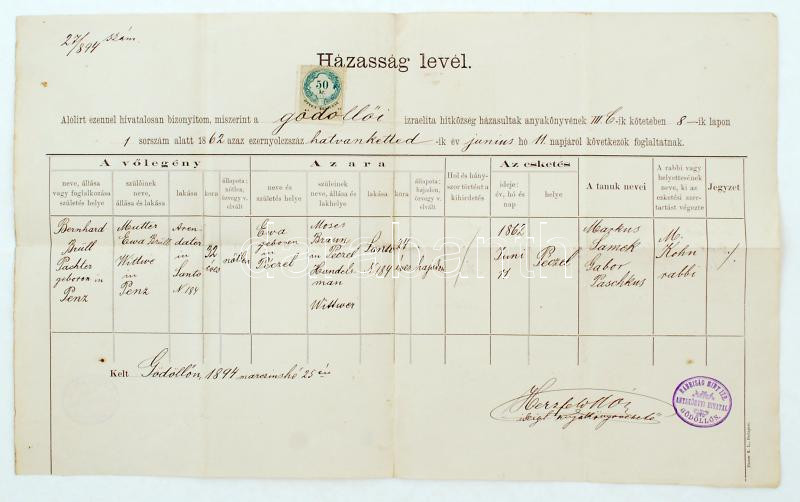 27/894 szám.
Házasság levél.
50 kr.
Alólirt ezennel hivatalosan bizonyitom, miszerint a gödöllői izraelita hitközség házasultak anyakönyvének III C-ik kötetében 8-ik lapon
1 sorszám alatt 1862 azaz ezernyolczszáz hatvankettedik-ik év junius hó 11. napjáról következők foglaltatnak.
A vőlegény A z a r a Az esketés
neve, állása vagy foglalkozása születés helye
szülőinek neve, állása és lakása
lakása
kora
állapota: nőtlen, özvegy v. elvált
neve és születés helye
szüleinek neve, állása és lakhelye
lakása
kora
állapota: hajadon, özvegy v. elvált
Hol és hányszor történt a kihirdetés
ideje: év, hó és nap
helye
A tanuk nevei
A rabbi vagy helyettesének neve, ki az esketési szertartást végezte
Jegyzet
Bernhard Brüll Pachter geboren in Penz
Mutter Ewa Brüll Wittwe in Penz
Arendator in Santo N 184
32 éves
nőtlen
Ewa geboren in Péczel
Moses Braun in Péczel Handelsman Wittwer
Santo N 184
24 éves
hajadon
1862 Juni 11
Péczel
Markus Samek Gabor Paschkus
M. Kohn rabbi
Kelt Gödöllőn, 1894 marczius hó 25 én
Herzfeld
GÖDÖLLŐN.
darabanth